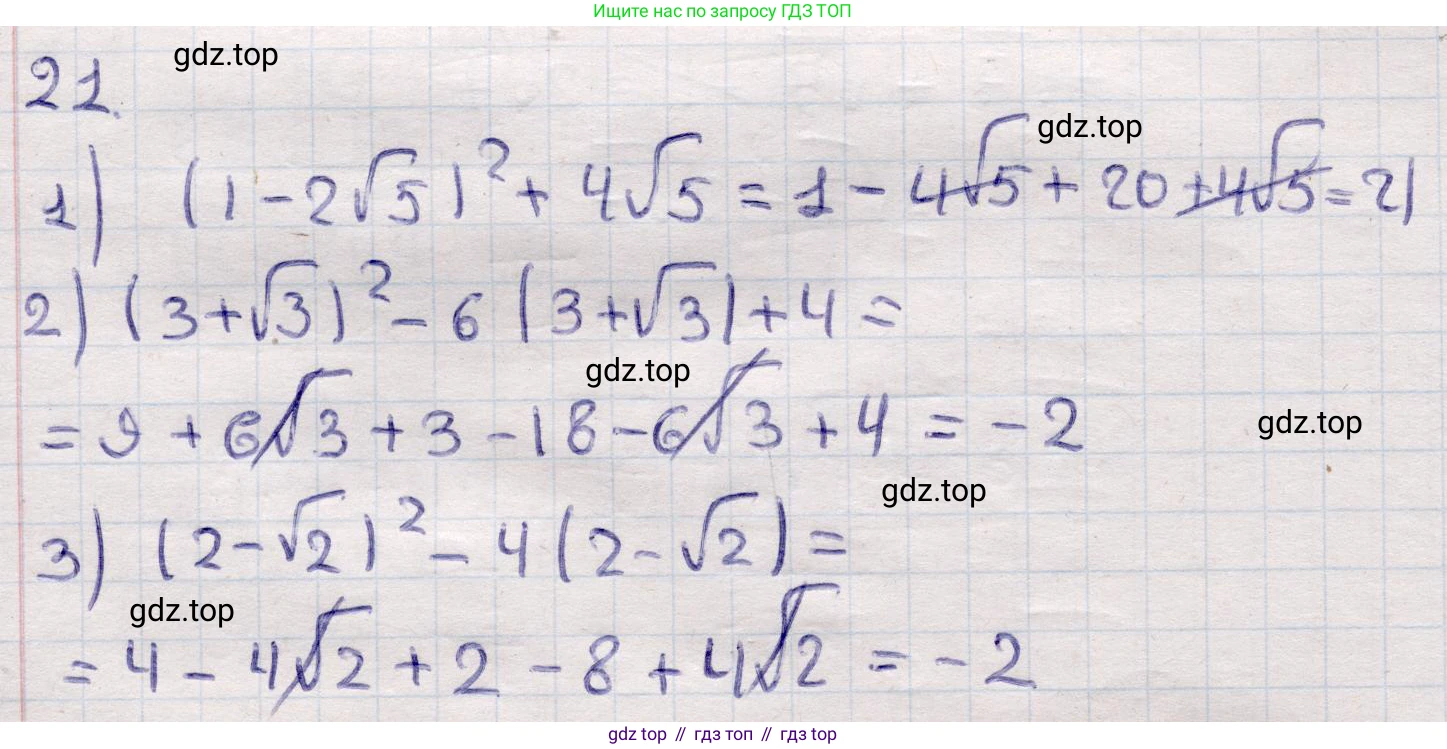 Ищите нас по запросу ГДЗ ТОП
gdz.top
21.
gdz.top
1) (1 - 2√5)² + 4√5 = 1 - 4√5 + 20 + 4√5 = 21
2) (3 + √3)² - 6 (3 + √3) + 4 =
gdz.top
= 9 + 6√3 + 3 - 18 - 6√3 + 4 = -2
gdz.top
gdz.top
3) (2 - √2)² - 4 (2 - √2) =
gdz.top
= 4 - 4√2 + 2 - 8 + 4√2 = -2
gdz.top // гдз топ // гдз top